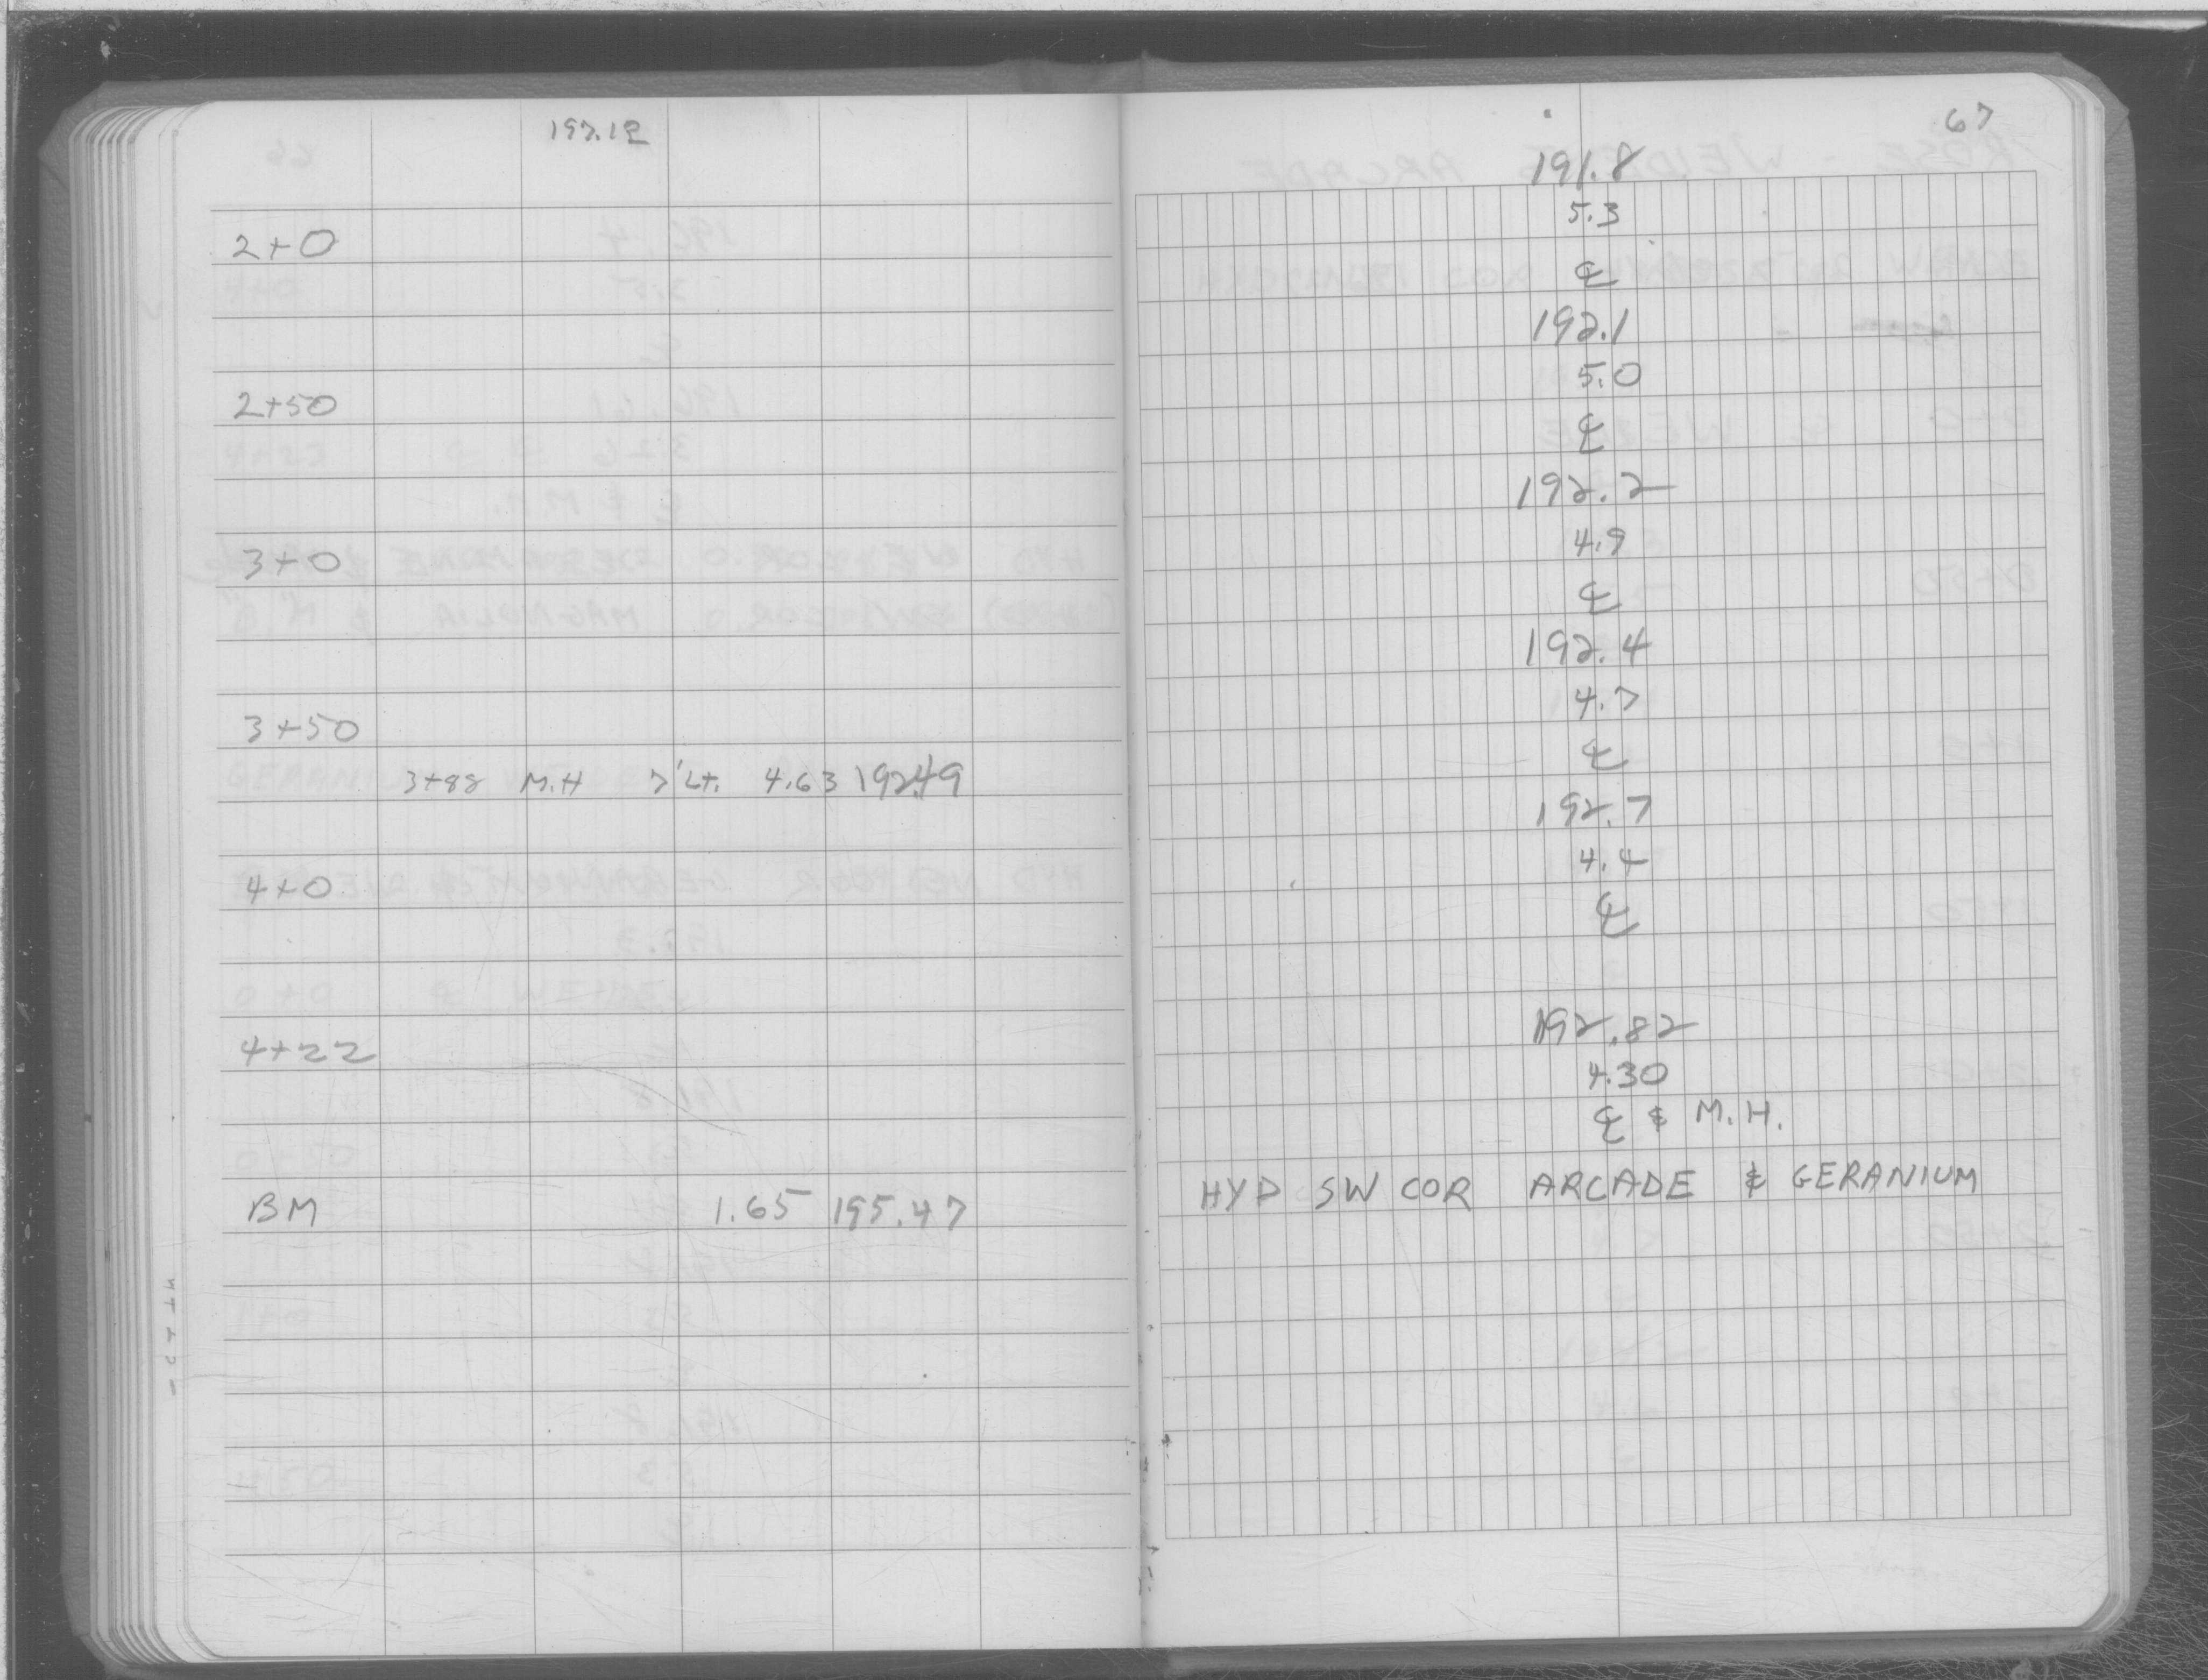 197.12
2+0
2+50
3+0
3+50
3+88 M.H 7' Lt. 4.63 192.49
4+0
4+22
BM 1.65 195.47
67
191.8
5.3
℄
192.1
5.0
℄
192.2
4.9
℄
192.4
4.7
℄
192.7
4.4
℄
192.82
4.30
℄ & M.H.
HYD SW COR ARCADE & GERANIUM